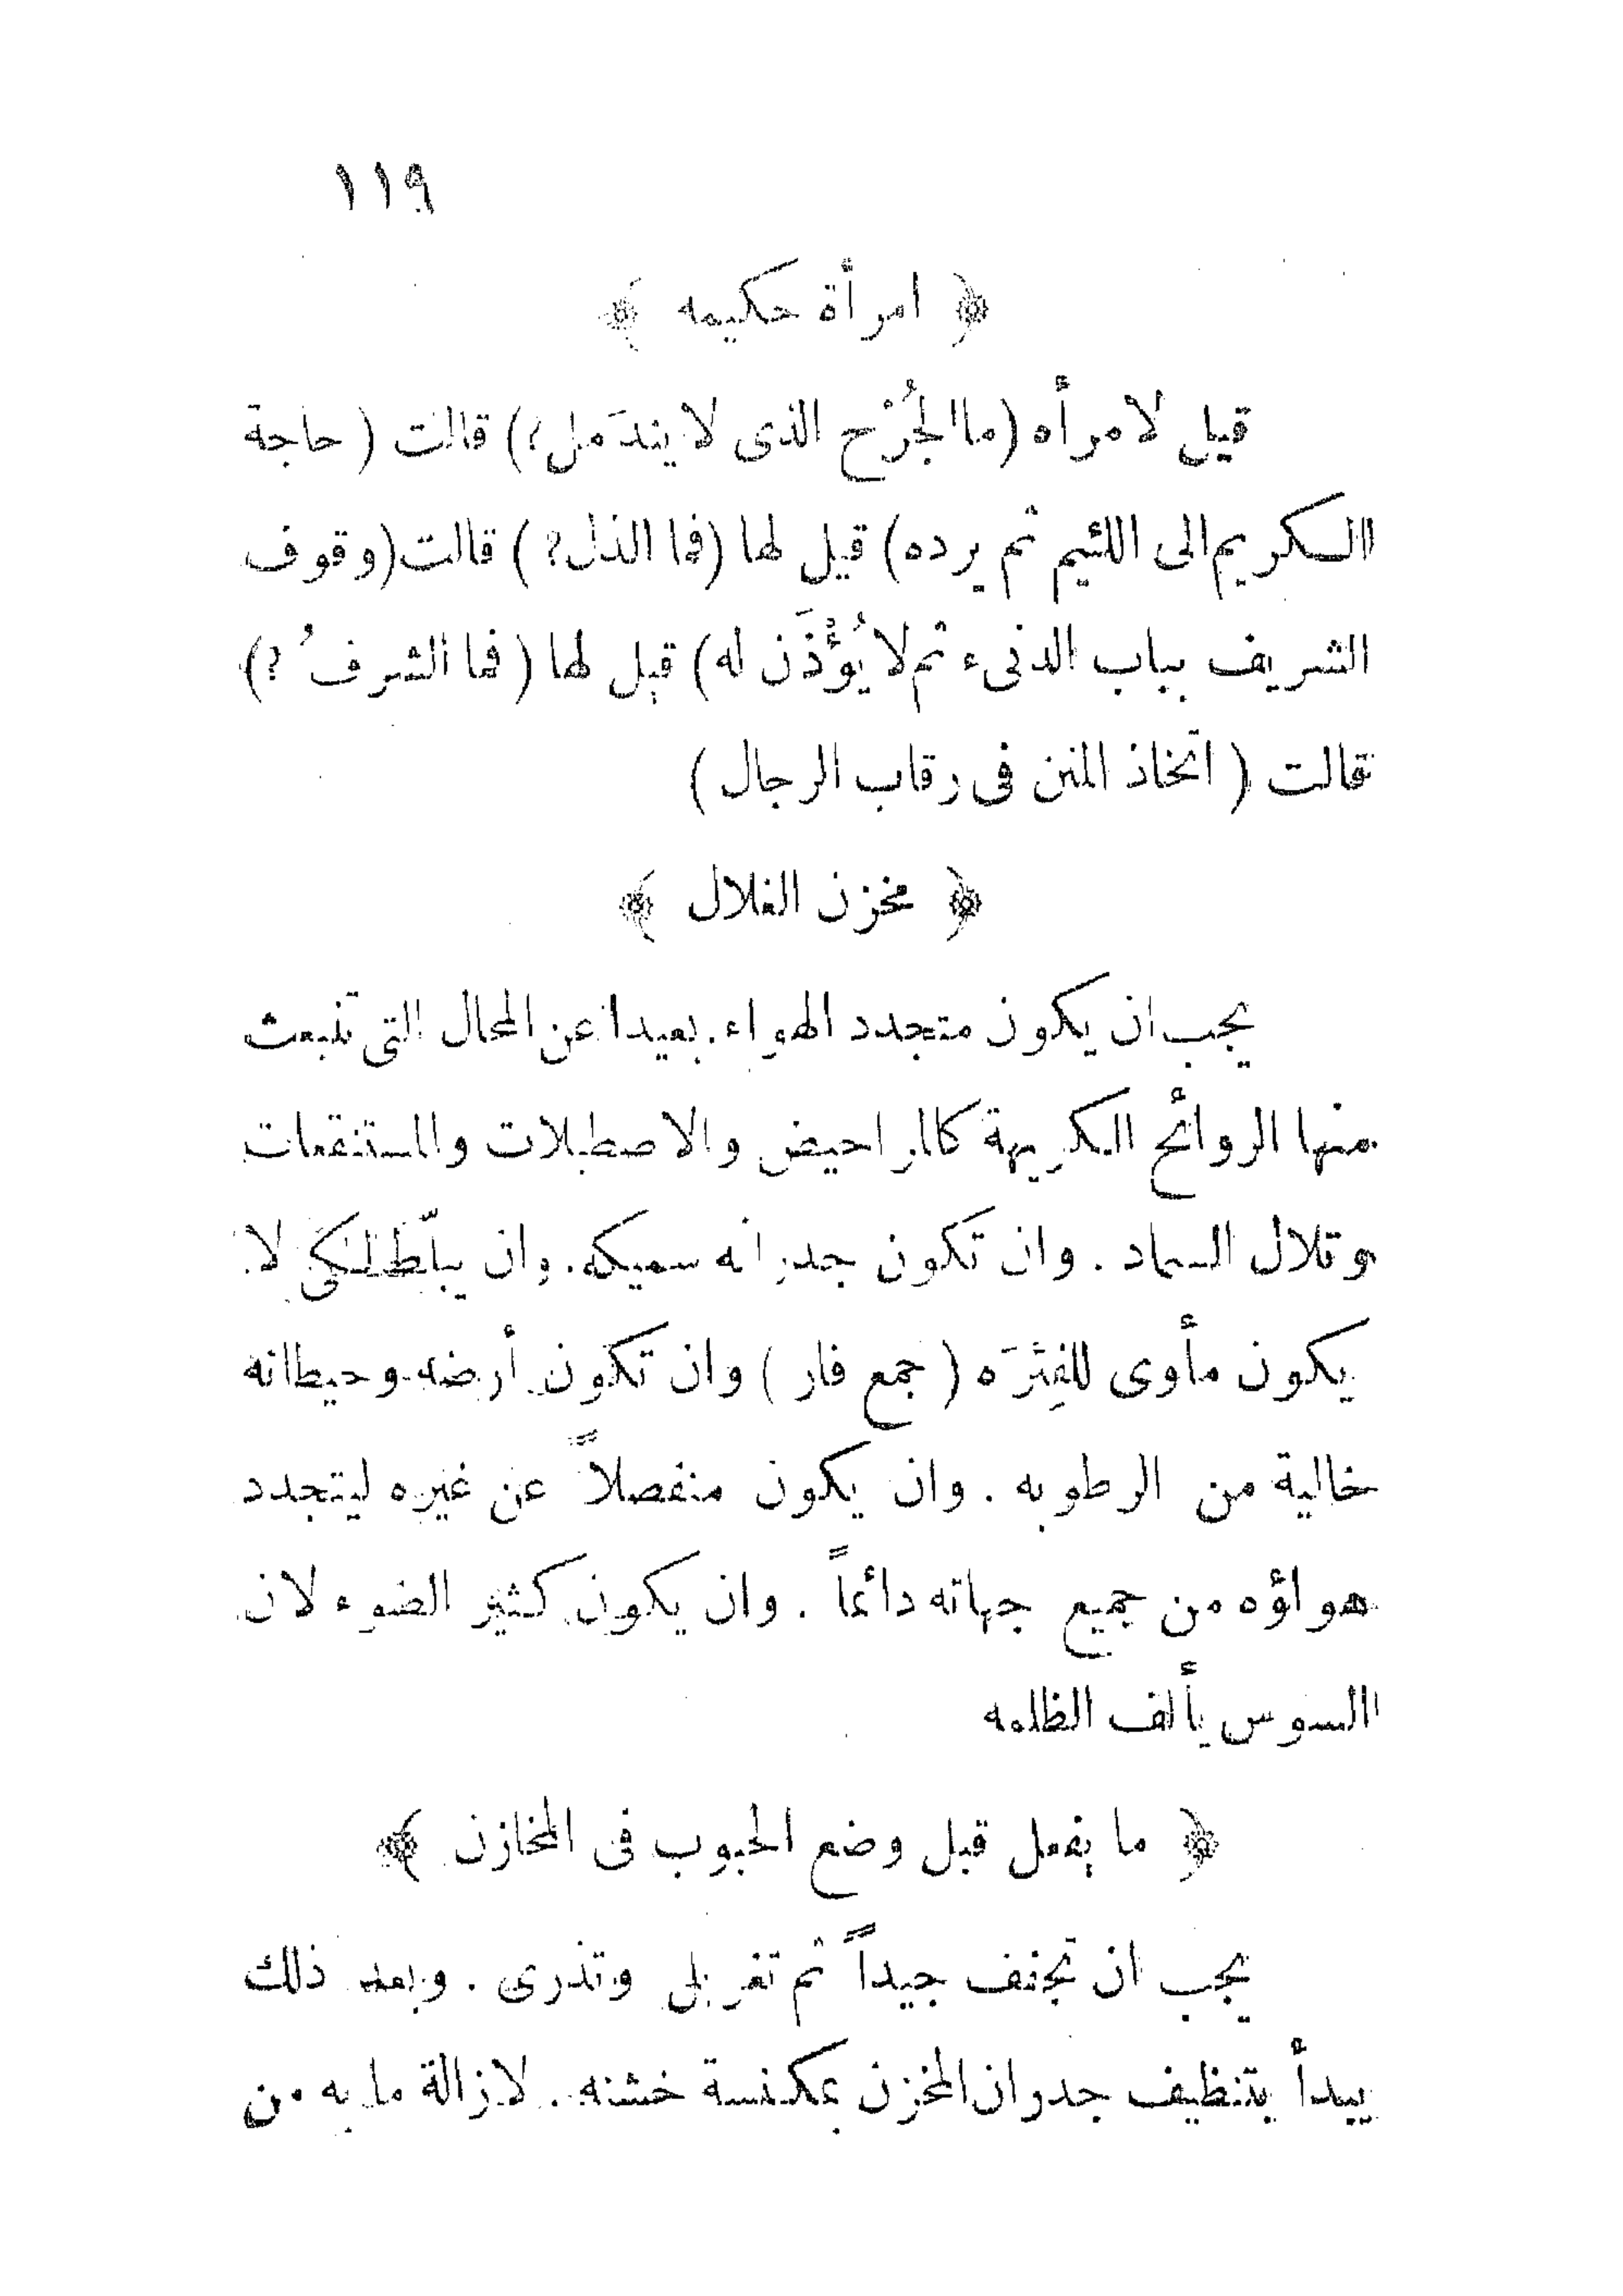 ١١٩
﴿ امرأة حكيمه ﴾
قيل لامرأه (ما الجُرْح الذى لا يندَمل؟) قالت (حاجة
الكريم الى اللئيم ثم يرده) قيل لها (فما الذل؟) قالت (وقوف
الشريف بباب الدنىء ثم لا يُؤْذَن له) قيل لها (فما الشرفُ؟)
قالت (اتخاذ المنن فى رقاب الرجال)
﴿ مخزن الغلال ﴾
يجب ان يكون متجدد الهواء. بعيدا عن المحال التى تنبعث
منها الروائح الكريهة كالمراحيض والاصطبلات والمستنقعات
وتلال السماد. وان تكون جدرانه سميكه. وان يبلّط لكى لا
يكون مأوى للفِئَرَه (جمع فار) وان تكون أرضه وحيطانه
خالية من الرطوبه. وان يكون منفصلاً عن غيره ليتجدد
هواؤه من جميع جهاته دائماً. وان يكون كثير الضوء لان
السوس يألف الظلمه
﴿ ما يفعل قبل وضع الحبوب فى المخازن ﴾
يجب ان تجفف جيداً ثم تغربل وتذرى. وبعد ذلك
يبدأ بتنظيف جدران المخزن بمكنسة خشنه. لازالة ما به من